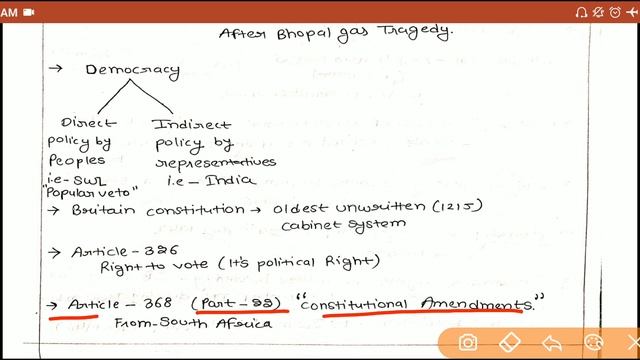 AM
After Bhopal gas Tragedy.
→ Democracy
Direct Indirect
policy by policy by
Peoples representatives
i.e - SWL i.e - India
"Popular veto"
→ Britain constitution → oldest unwritten (1215)
cabinet system
→ Article - 326
Right to vote (It's political Right)
→ Article - 368 (Part - 20) "Constitutional Amendments."
From - South Africa